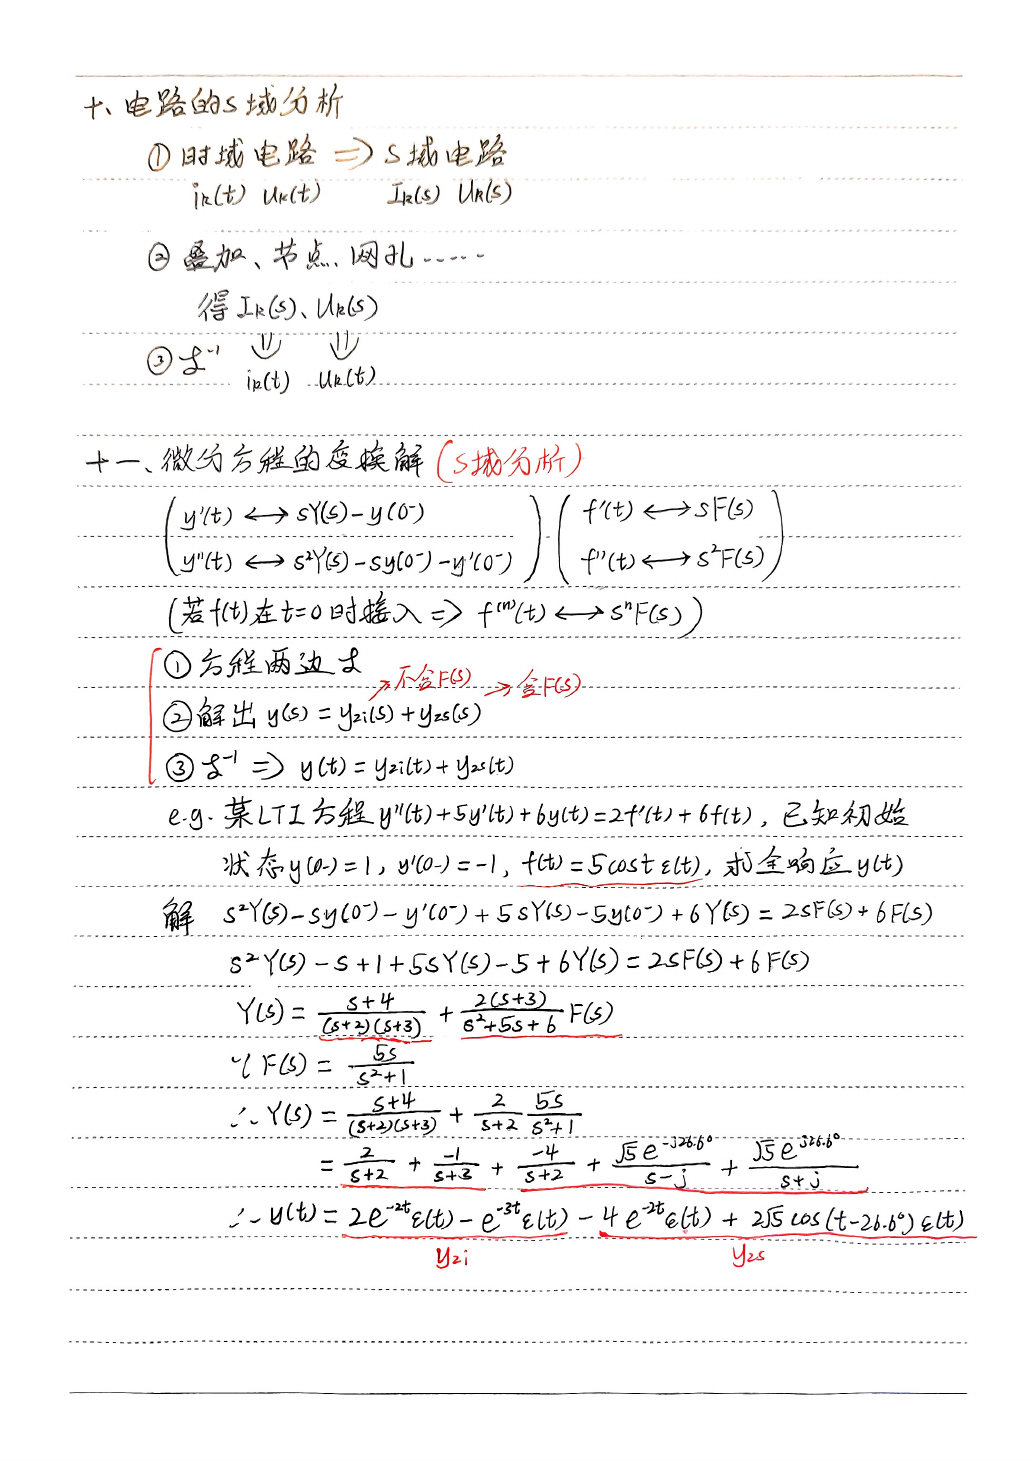 十、电路的S域分析
① 时域电路 => S域电路
iR(t) UR(t) IR(s) UR(s)
② 叠加、节点、网孔……
得 IR(s)、UR(s)
③ ℒ⁻¹ ⇓ ⇓
iR(t) UR(t)
十一、微分方程的变换解 (S域分析)
( y'(t) ↔ sY(s)-y(0⁻) ) ( f'(t) ↔ sF(s) )
( y''(t) ↔ s²Y(s)-sy(0⁻)-y'(0⁻) ) ( f''(t) ↔ s²F(s) )
(若f(t)在t=0时接入 => f⁽ⁿ⁾(t) ↔ sⁿF(s))
① 方程两边ℒ
↗不含F(s) → 含F(s)
② 解出 y(s) = yzi(s) + yzs(s)
③ ℒ⁻¹ => y(t) = yzi(t) + yzs(t)
e.g. 某LTI方程 y''(t)+5y'(t)+6y(t)=2f'(t)+6f(t), 已知初始
状态y(0-)=1, y'(0-)=-1, f(t)=5cost ε(t), 求全响应y(t)
解 s²Y(s)-sy(0⁻)-y'(0⁻)+5sY(s)-5y(0⁻)+6Y(s)=2sF(s)+6F(s)
s²Y(s)-s+1+5sY(s)-5+6Y(s)=2sF(s)+6F(s)
Y(s) = (s+4)/((s+2)(s+3)) + 2(s+3)/(s²+5s+6) F(s)
∵ F(s) = 5s/(s²+1)
∴ Y(s) = (s+4)/((s+2)(s+3)) + 2/(s+2) 5s/(s²+1)
= 2/(s+2) + -1/(s+3) + -4/(s+2) + √5e^(-j26.6°)/(s-j) + √5e^(j26.6°)/(s+j)
∴ y(t) = 2e^(-2t)ε(t) - e^(-3t)ε(t) - 4e^(-2t)ε(t) + 2√5cos(t-26.6°)ε(t)
yzi yzs